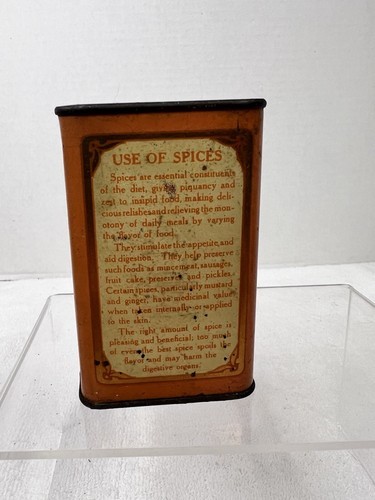 USE OF SPICES
Spices are essential constituents
of the diet, giving piquancy and
zest to insipid food, making deli-
cious relishes and relieving the mon-
otony of daily meals by varying
the flavor of food.
They stimulate the appetite, and
aid digestion. They help preserve
such foods as mincemeat, sausages,
fruit cake, preserves and pickles.
Certain spices, particularly mustard
and ginger, have medicinal value
when taken internally or applied
to the skin.
The right amount of spice is
pleasing and beneficial; too much
of even the best spice spoils the
flavor and may harm the
digestive organs.